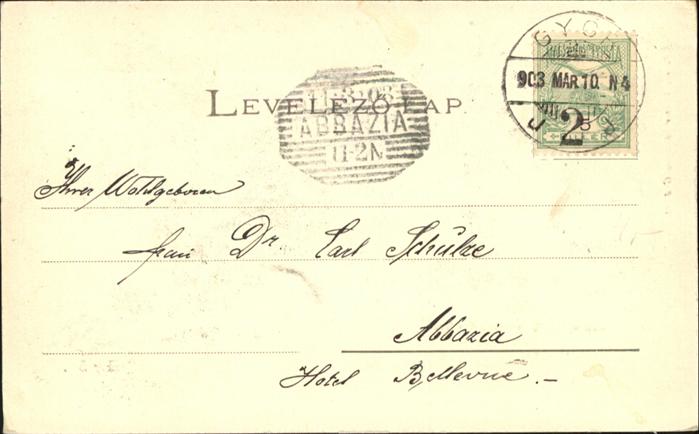 GYŐR
903 MAR 10. N4
2
LEVELEZŐ-LAP
11·3·03
ABBAZIA
11-2N
Ihrer Wohlgeboren
Frau Dr. Carl Schulze
Abbazia
Hotel Bellevue.–